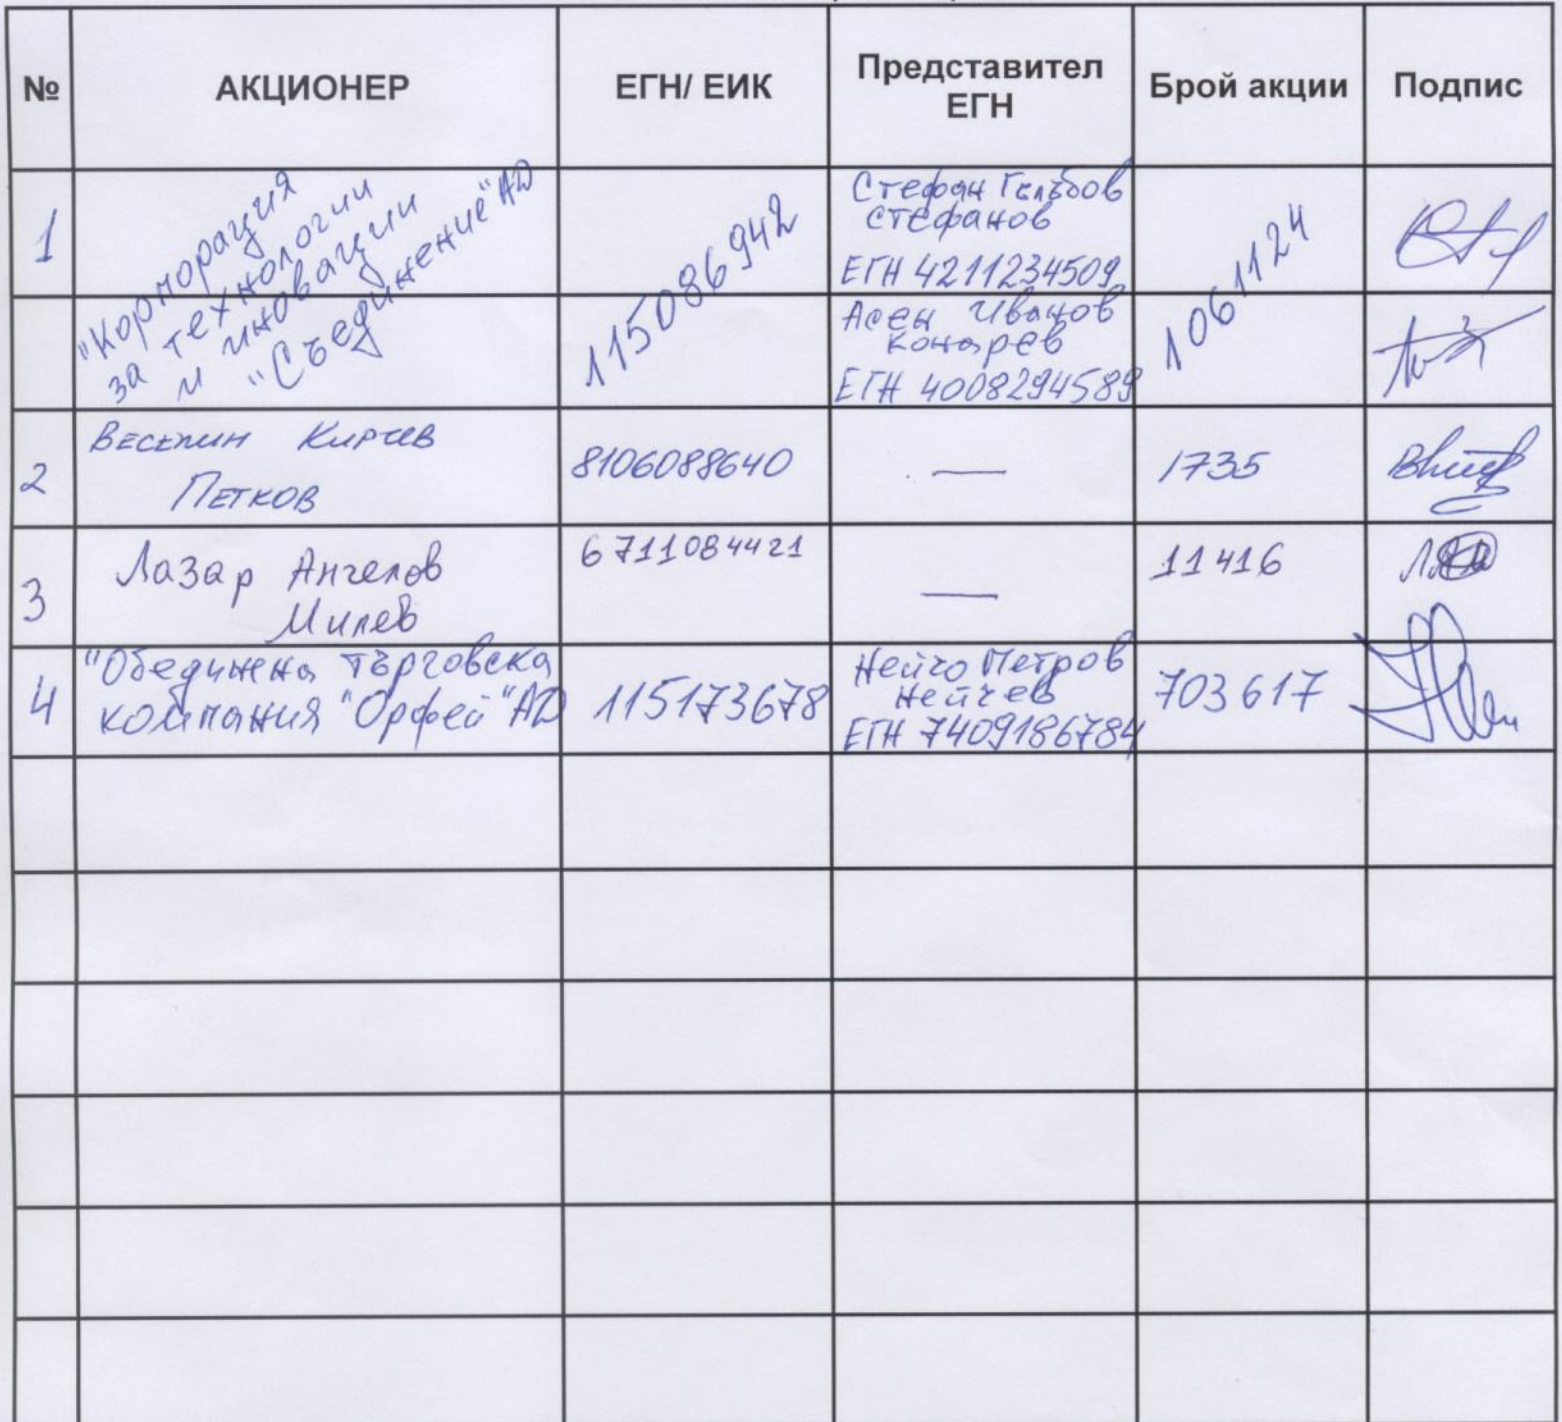 № АКЦИОНЕР ЕГН/ ЕИК Представител ЕГН Брой акции Подпис
1
"Корпорация
за технологии
и иновации
"Съединение"АД
115086942
Стефан Гълъбов
Стефанов
ЕГН 4211234509
Асен Иванов
Конарев
ЕГН 4008294589
1061124
2
Веселин Кирчев
Петков
8106088640
—
1735
3
Лазар Ангелов
Милев
6711084421
—
11416
4
"Обединена търговска
компания "Орфей"АД
115173678
Нейчо Петров
Нейчев
ЕГН 7409186784
703617